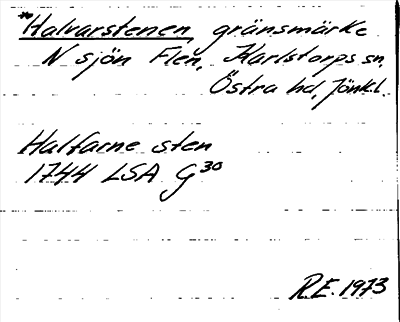 *Halvarstenen, gränsmärke
N sjön Flen, Karlstorps sn,
Östra hd, Jönkl.
Halfarne sten
1744 LSA G30
R.E. 1973